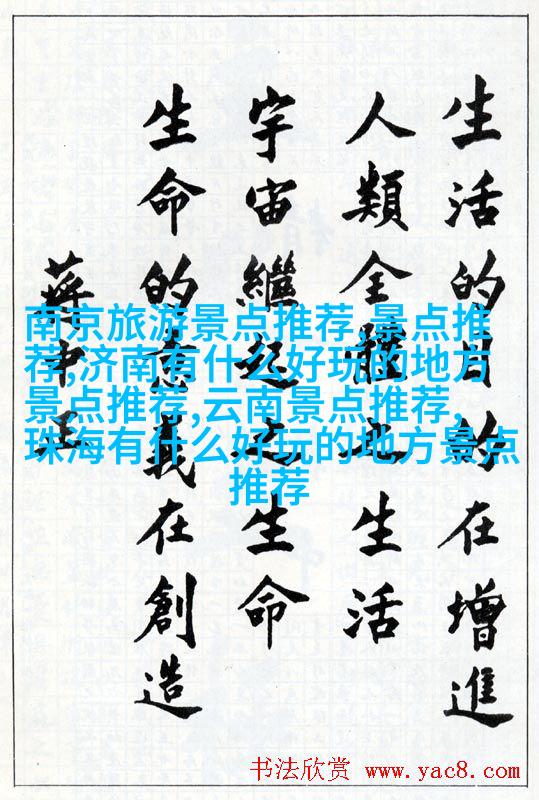 生活的目的在增進
人類全體之生活
宇宙繼起之生命
生命的意義在創造
蔣中正
南京旅游景点推荐,景点推
荐,济南有什么好玩的地方
景点推荐,云南景点推荐,
珠海有什么好玩的地方景点
推荐
书法欣赏 www.yac8.com